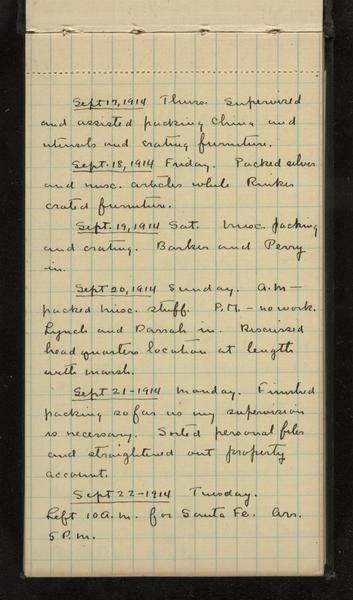 Sept 17, 1914 Thurs. Supervised
and assisted packing china and
utensils and crating furniture.
Sept. 18, 1914 Friday. Packed silver
and misc. articles while Rinker
crated furniture.
Sept. 19, 1914 Sat. Misc. packing
and crating. Barker and Perry
in.
Sept 20, 1914 Sunday. A.M —
packed misc. stuff. P.M. – no work.
Lynch and Darrah in. Discussed
headquarters location at length
with Marsh.
Sept 21-1914 Monday. Finished
packing so far as my supervision
is necessary. Sorted personal files
and straightened out property
account.
Sept 22-1914 Tuesday.
Left 10 A.M. for Santa Fe. Arr.
5 P.M.